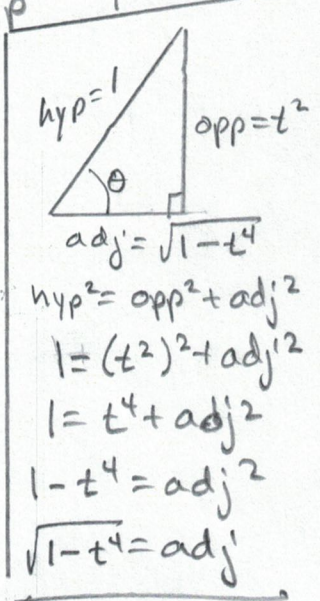 hyp=1
opp=t²
θ
adj=√1-t⁴
hyp²=opp²+adj²
1=(t²)²+adj²
1=t⁴+adj²
1-t⁴=adj²
√1-t⁴=adj